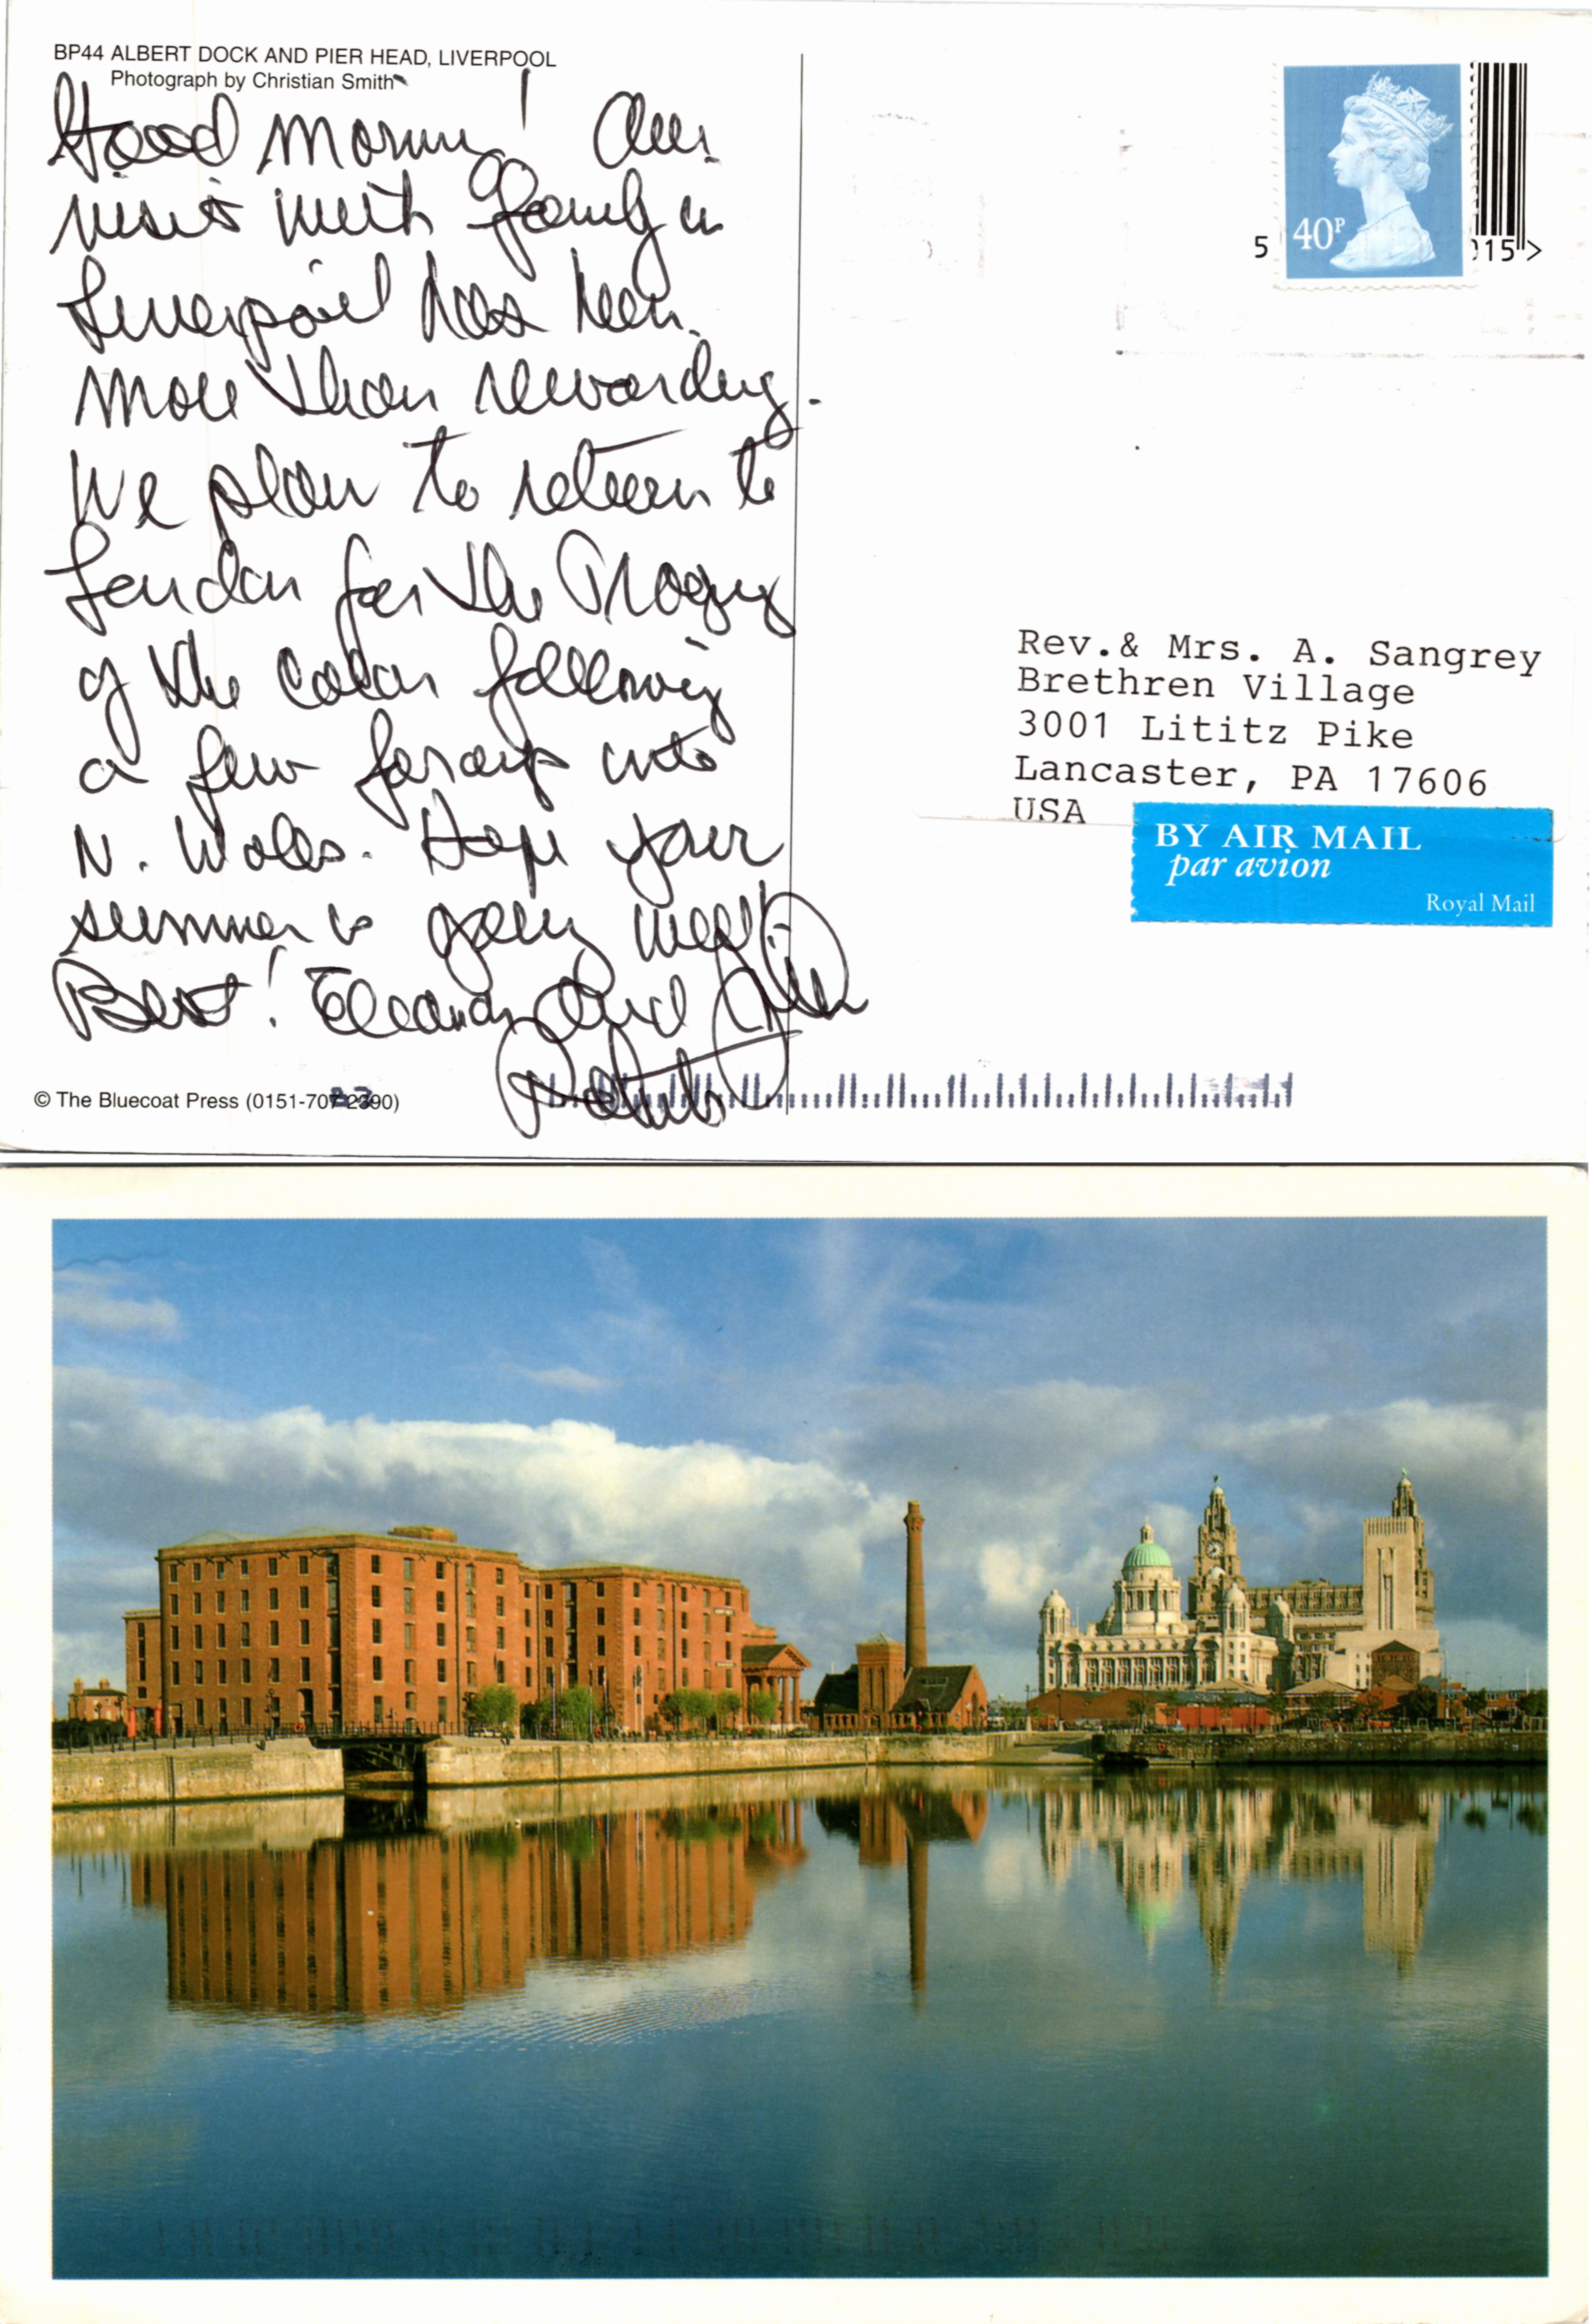 BP44 ALBERT DOCK AND PIER HEAD, LIVERPOOL
Photograph by Christian Smith
Good Morning! Our
visit with family in
Liverpool has been
more than rewarding.
We plan to return to
London for the
of the Color following
a few forays into
N. Wales. Hope your
summer is going well!
Best! Eleanor and
© The Bluecoat Press (0151-707-2390)
40P
5
015>
Rev.& Mrs. A. Sangrey
Brethren Village
3001 Lititz Pike
Lancaster, PA 17606
USA
BY AIR MAIL
par avion
Royal Mail